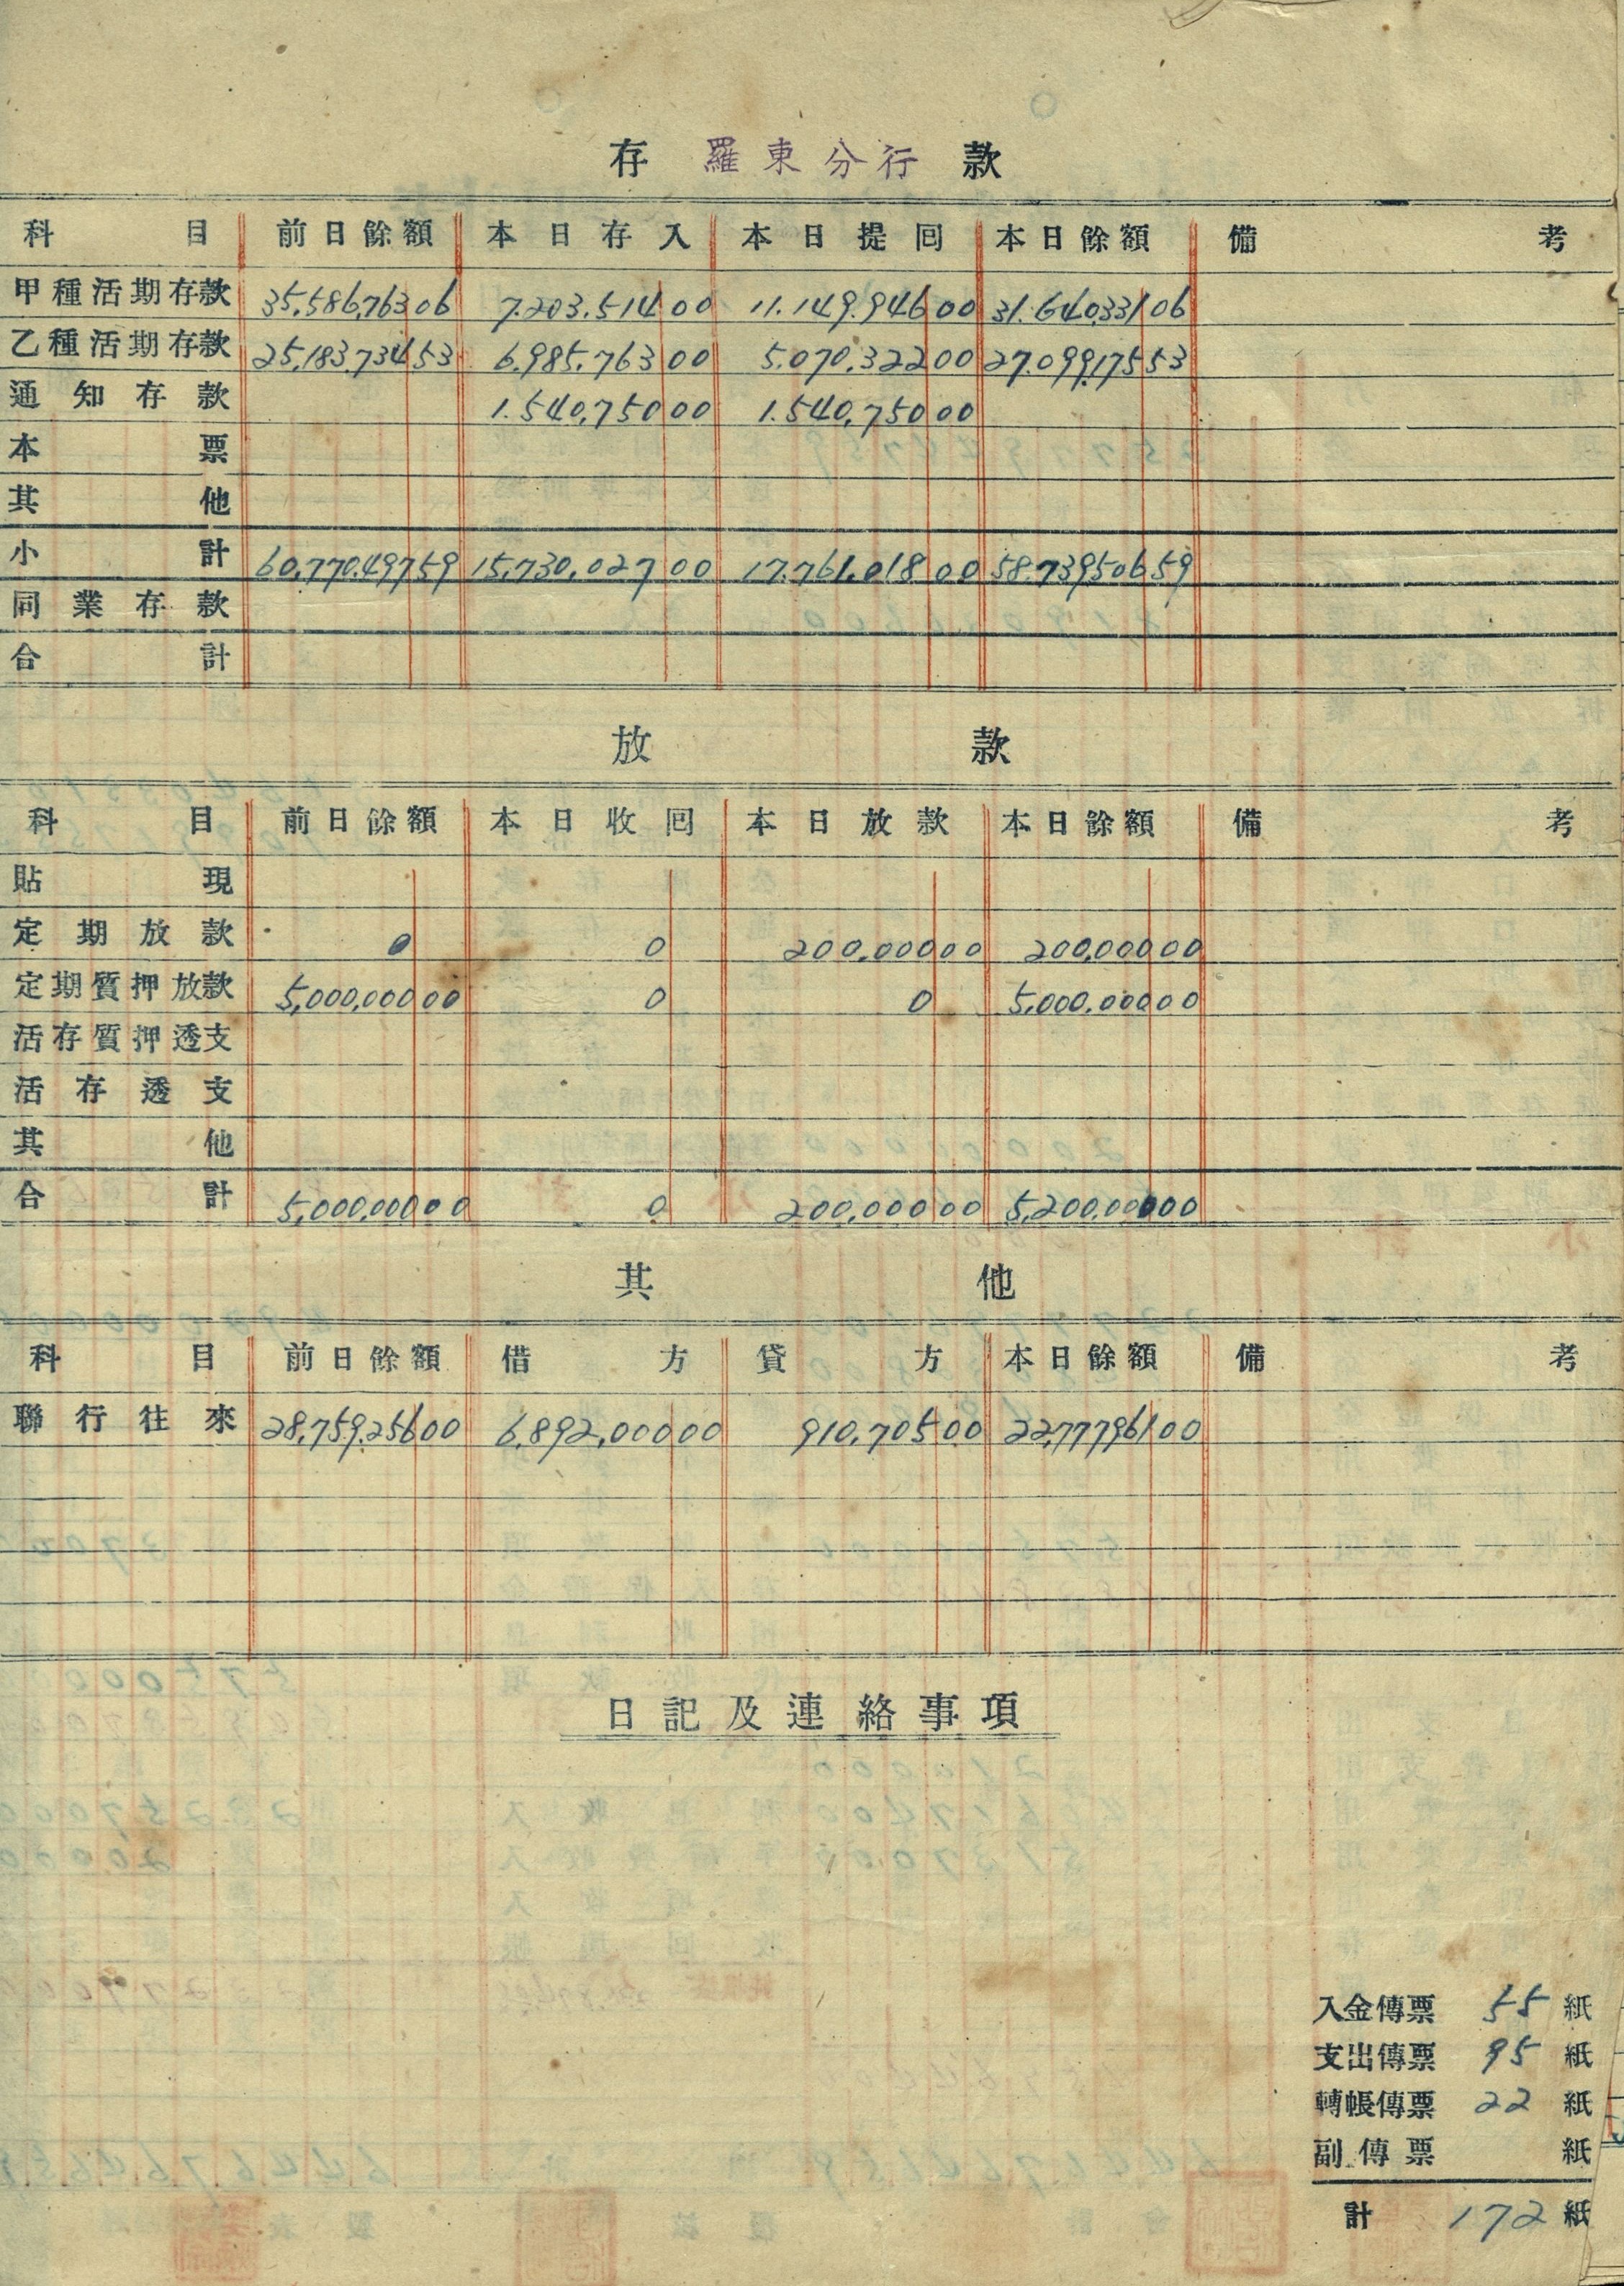 存 羅東分行 款
科目 前日餘額 本日存入 本日提回 本日餘額 備考
甲種活期存款 35,586,763 06 7,203,514 00 11,149,946 00 31,640,331 06
乙種活期存款 25,183,734 53 6,985,763 00 5,070,322 00 27,099,175 53
通知存款 1,540,750 00 1,540,750 00
本票
其他
小計 60,770,497 59 15,730,027 00 17,761,018 00 58,739,506 59
同業存款
合計
放款
科目 前日餘額 本日收回 本日放款 本日餘額 備考
貼現
定期放款 0 0 200,000 00 200,000 00
定期質押放款 5,000,000 00 0 0 5,000,000 00
活存質押透支
活存透支
其他
合計 5,000,000 00 0 200,000 00 5,200,000 00
其他
科目 前日餘額 借方 貸方 本日餘額 備考
聯行往來 28,759,256 00 6,892,000 00 910,705 00 22,777,961 00
日記及連絡事項
入金傳票 55 紙
支出傳票 95 紙
轉帳傳票 22 紙
副傳票 紙
計 172 紙